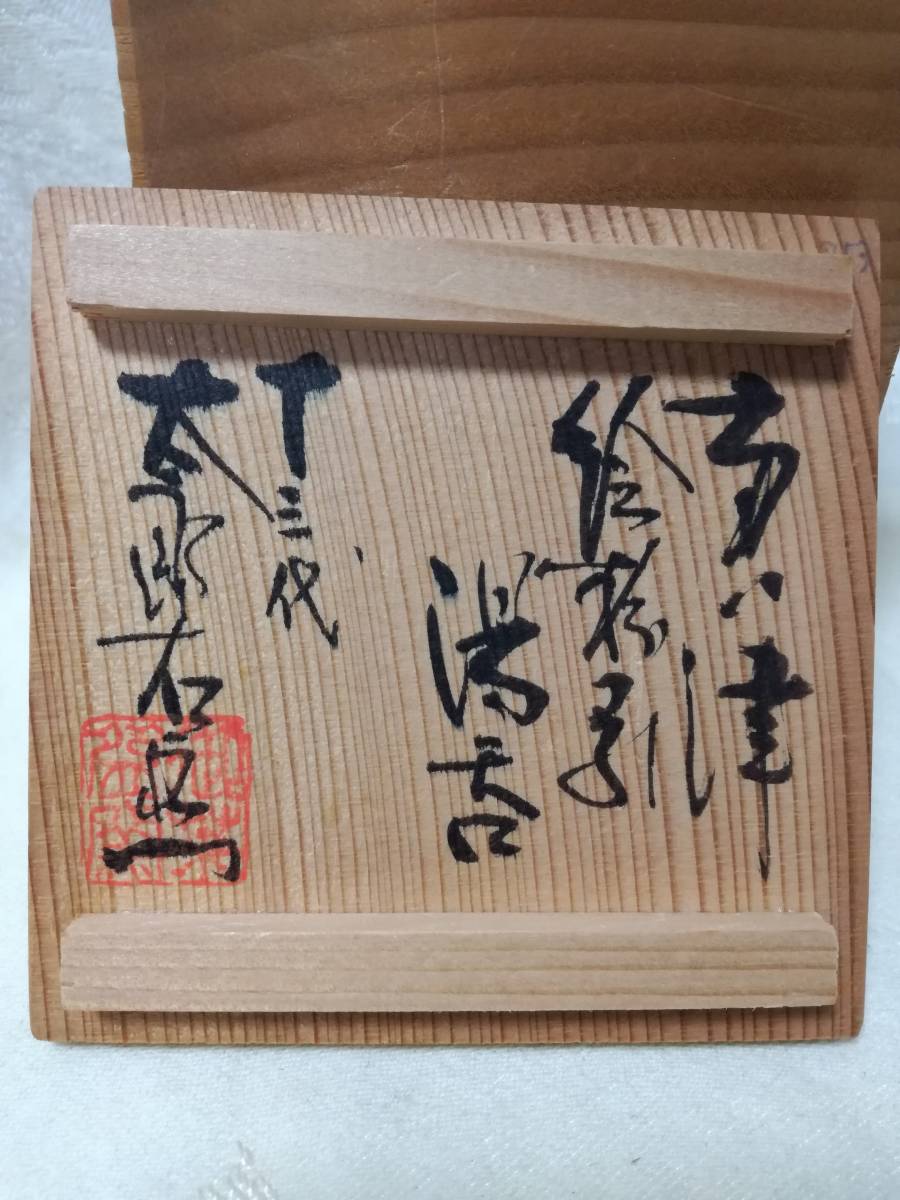 唐津
絵粉引
湯呑
十三代
太郎右衛門